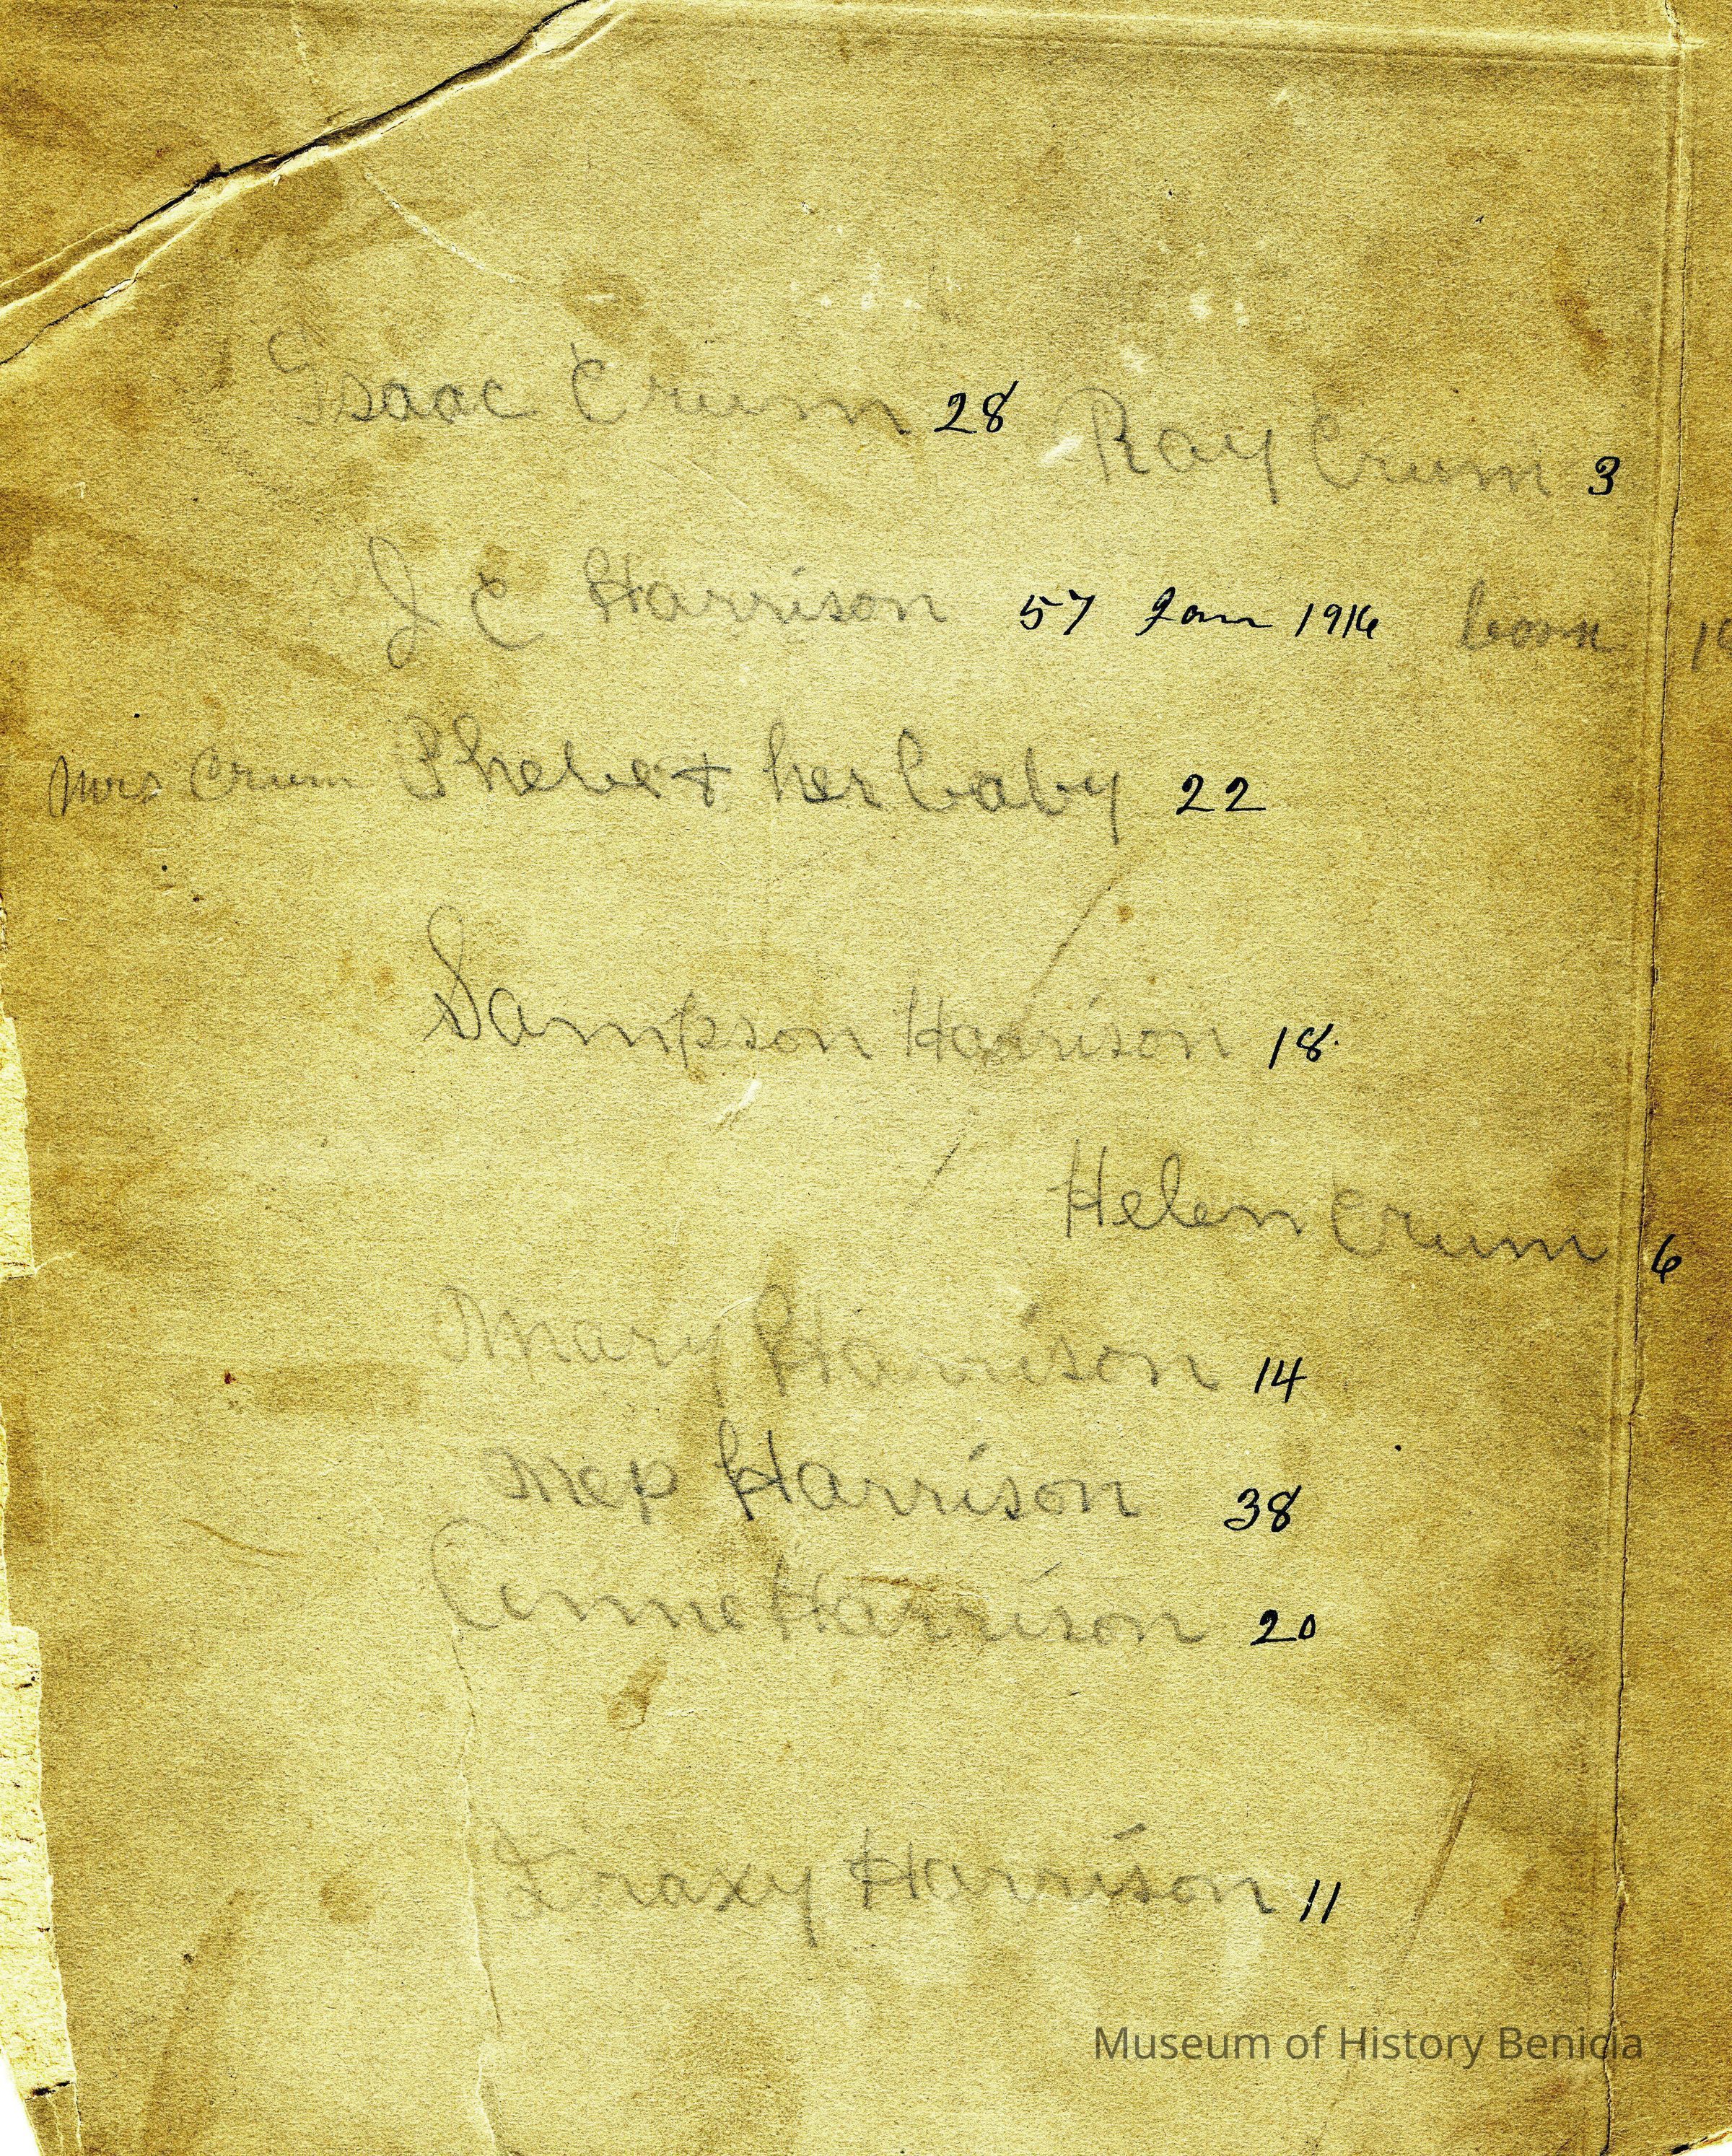 Isaac Crum 28 Ray Crum 3
J C Harrison 57 Jan 1916 born
Mrs Crum Phebe + her baby 22
Sampson Harrison 18
Helen Crum 6
Mary Harrison 14
Mep Harrison 38
Harrison 20
Draxy Harrison 11
Museum of History Benicia